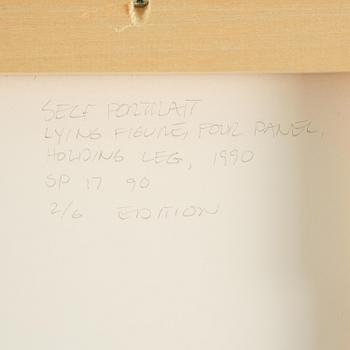 SELF PORTRAIT
LYING FIGURE, FOUR PANEL,
HOLDING LEG, 1990
SP 17 90
2/6 EDITION